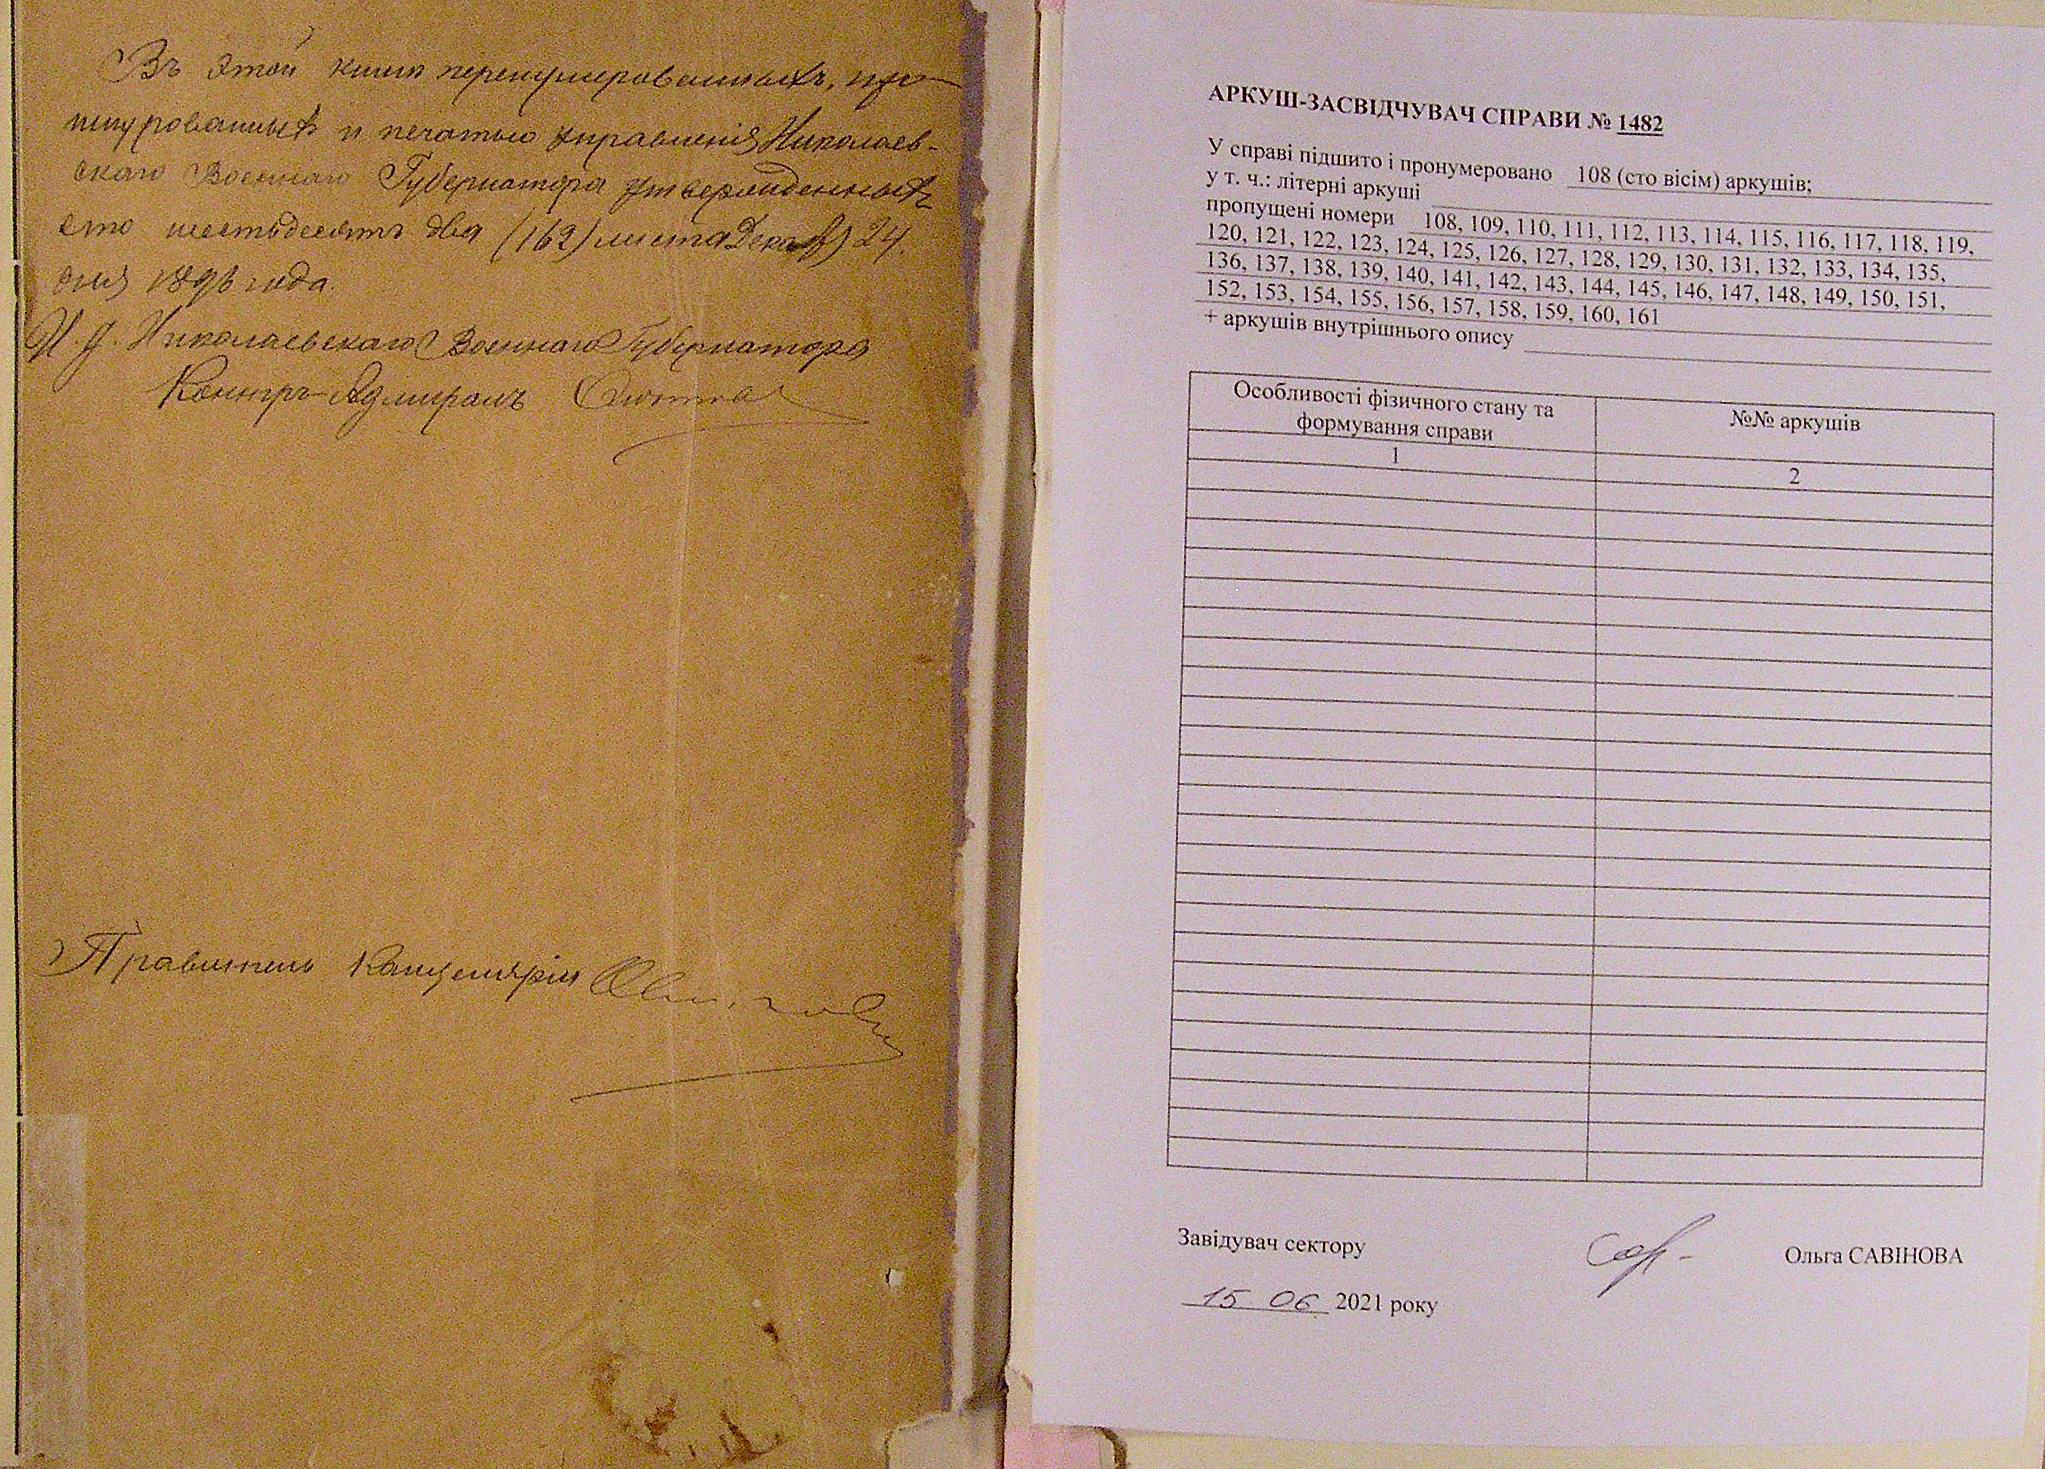 Въ этой книгѣ перенумерованныхъ, про-
шнурованныхъ и печатью управленія Николаев-
скаго Военнаго Губернатора утвержденныхъ
сто шестьдесятъ два (162) листа 24
дня года.
И. д. Николаевскаго Военнаго Губернатора
Контръ-Адмиралъ
Правитель Канцеляріи
АРКУШ-ЗАСВІДЧУВАЧ СПРАВИ № 1482
У справі підшито і пронумеровано 108 (сто вісім) аркушів;
у т. ч.: літерні аркуші
пропущені номери 108, 109, 110, 111, 112, 113, 114, 115, 116, 117, 118, 119,
120, 121, 122, 123, 124, 125, 126, 127, 128, 129, 130, 131, 132, 133, 134, 135,
136, 137, 138, 139, 140, 141, 142, 143, 144, 145, 146, 147, 148, 149, 150, 151,
152, 153, 154, 155, 156, 157, 158, 159, 160, 161
+ аркушів внутрішнього опису
Особливості фізичного стану та
формування справи
№№ аркушів
1
2
Завідувач сектору
Ольга САВІНОВА
15 06 2021 року